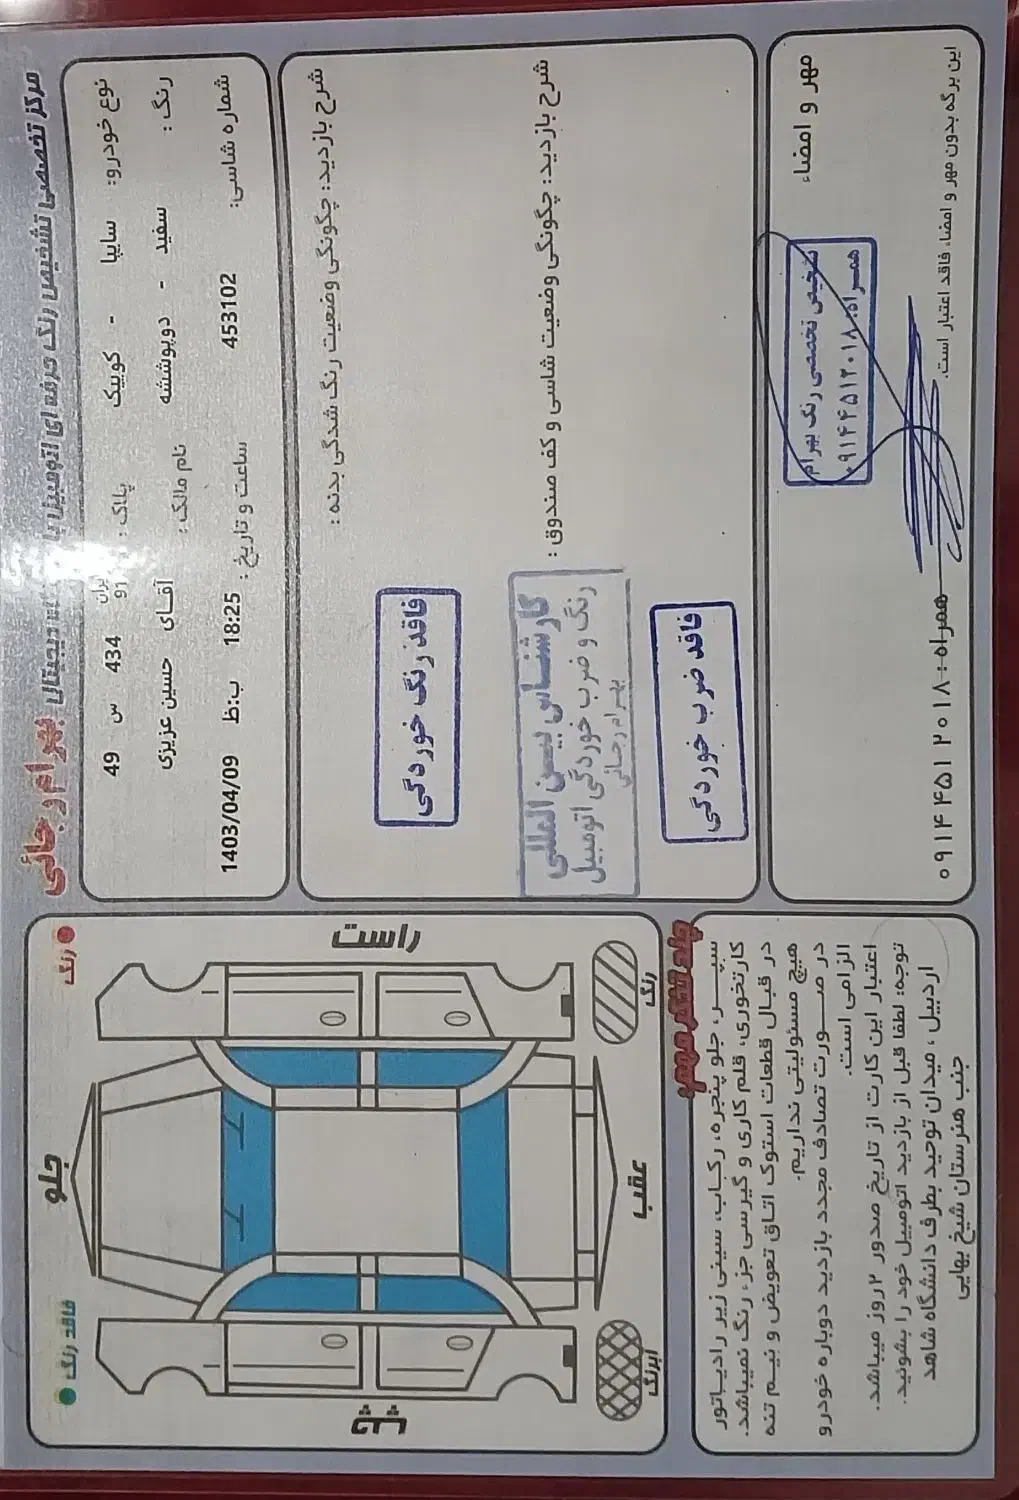 مرکز تخصصی تشخیص رنگ حرفه ای اتومبیل با دیجیتال بهرام رجائی
نوع خودرو: سایپا - کوییک پلاک: ایران 91 434 س 49
رنگ: سفید - دوپوششه نام مالک: آقای حسین عزیزی
شماره شاسی: 453102 ساعت و تاریخ: 18:25 ب:ظ 1403/04/09
شرح بازدید: چگونگی وضعیت رنگ شدگی بدنه:
فاقد رنگ خوردگی
شرح بازدید: چگونگی وضعیت شاسی و کف صندوق:
کارشناس بین المللی
رنگ و ضرب خوردگی اتومبیل
بهرام رجائی
فاقد ضرب خوردگی
مهر و امضاء
تشخیص تخصصی رنگ بهرام
همراه: ۰۹۱۴۴۵۱۲۰۱۸
این برگه بدون مهر و امضاء فاقد اعتبار است. همراه: ۰۹۱۴۴۵۱۲۰۱۸
رنگ
فاقد رنگ
جلو
راست
چپ
عقب
رنگ
آبرنگ
چند تذکر مهم:
سپر، جلو پنجره، رکاب، سینی زیر رادیاتور
کارتخوری، قلم کاری و گیرسی جزء رنگ نمیباشد.
در قبال قطعات استوک اتاق تعویض و نیم تنه
هیچ مسئولیتی نداریم.
در صورت تصادف مجدد بازدید دوباره خودرو
الزامی است.
اعتبار این کارت از تاریخ صدور ۲ روز میباشد.
توجه: لطفا قبل از بازدید اتومبیل خود را بشوئید.
اردبیل، میدان توحید بطرف دانشگاه شاهد
جنب هنرستان شیخ بهایی